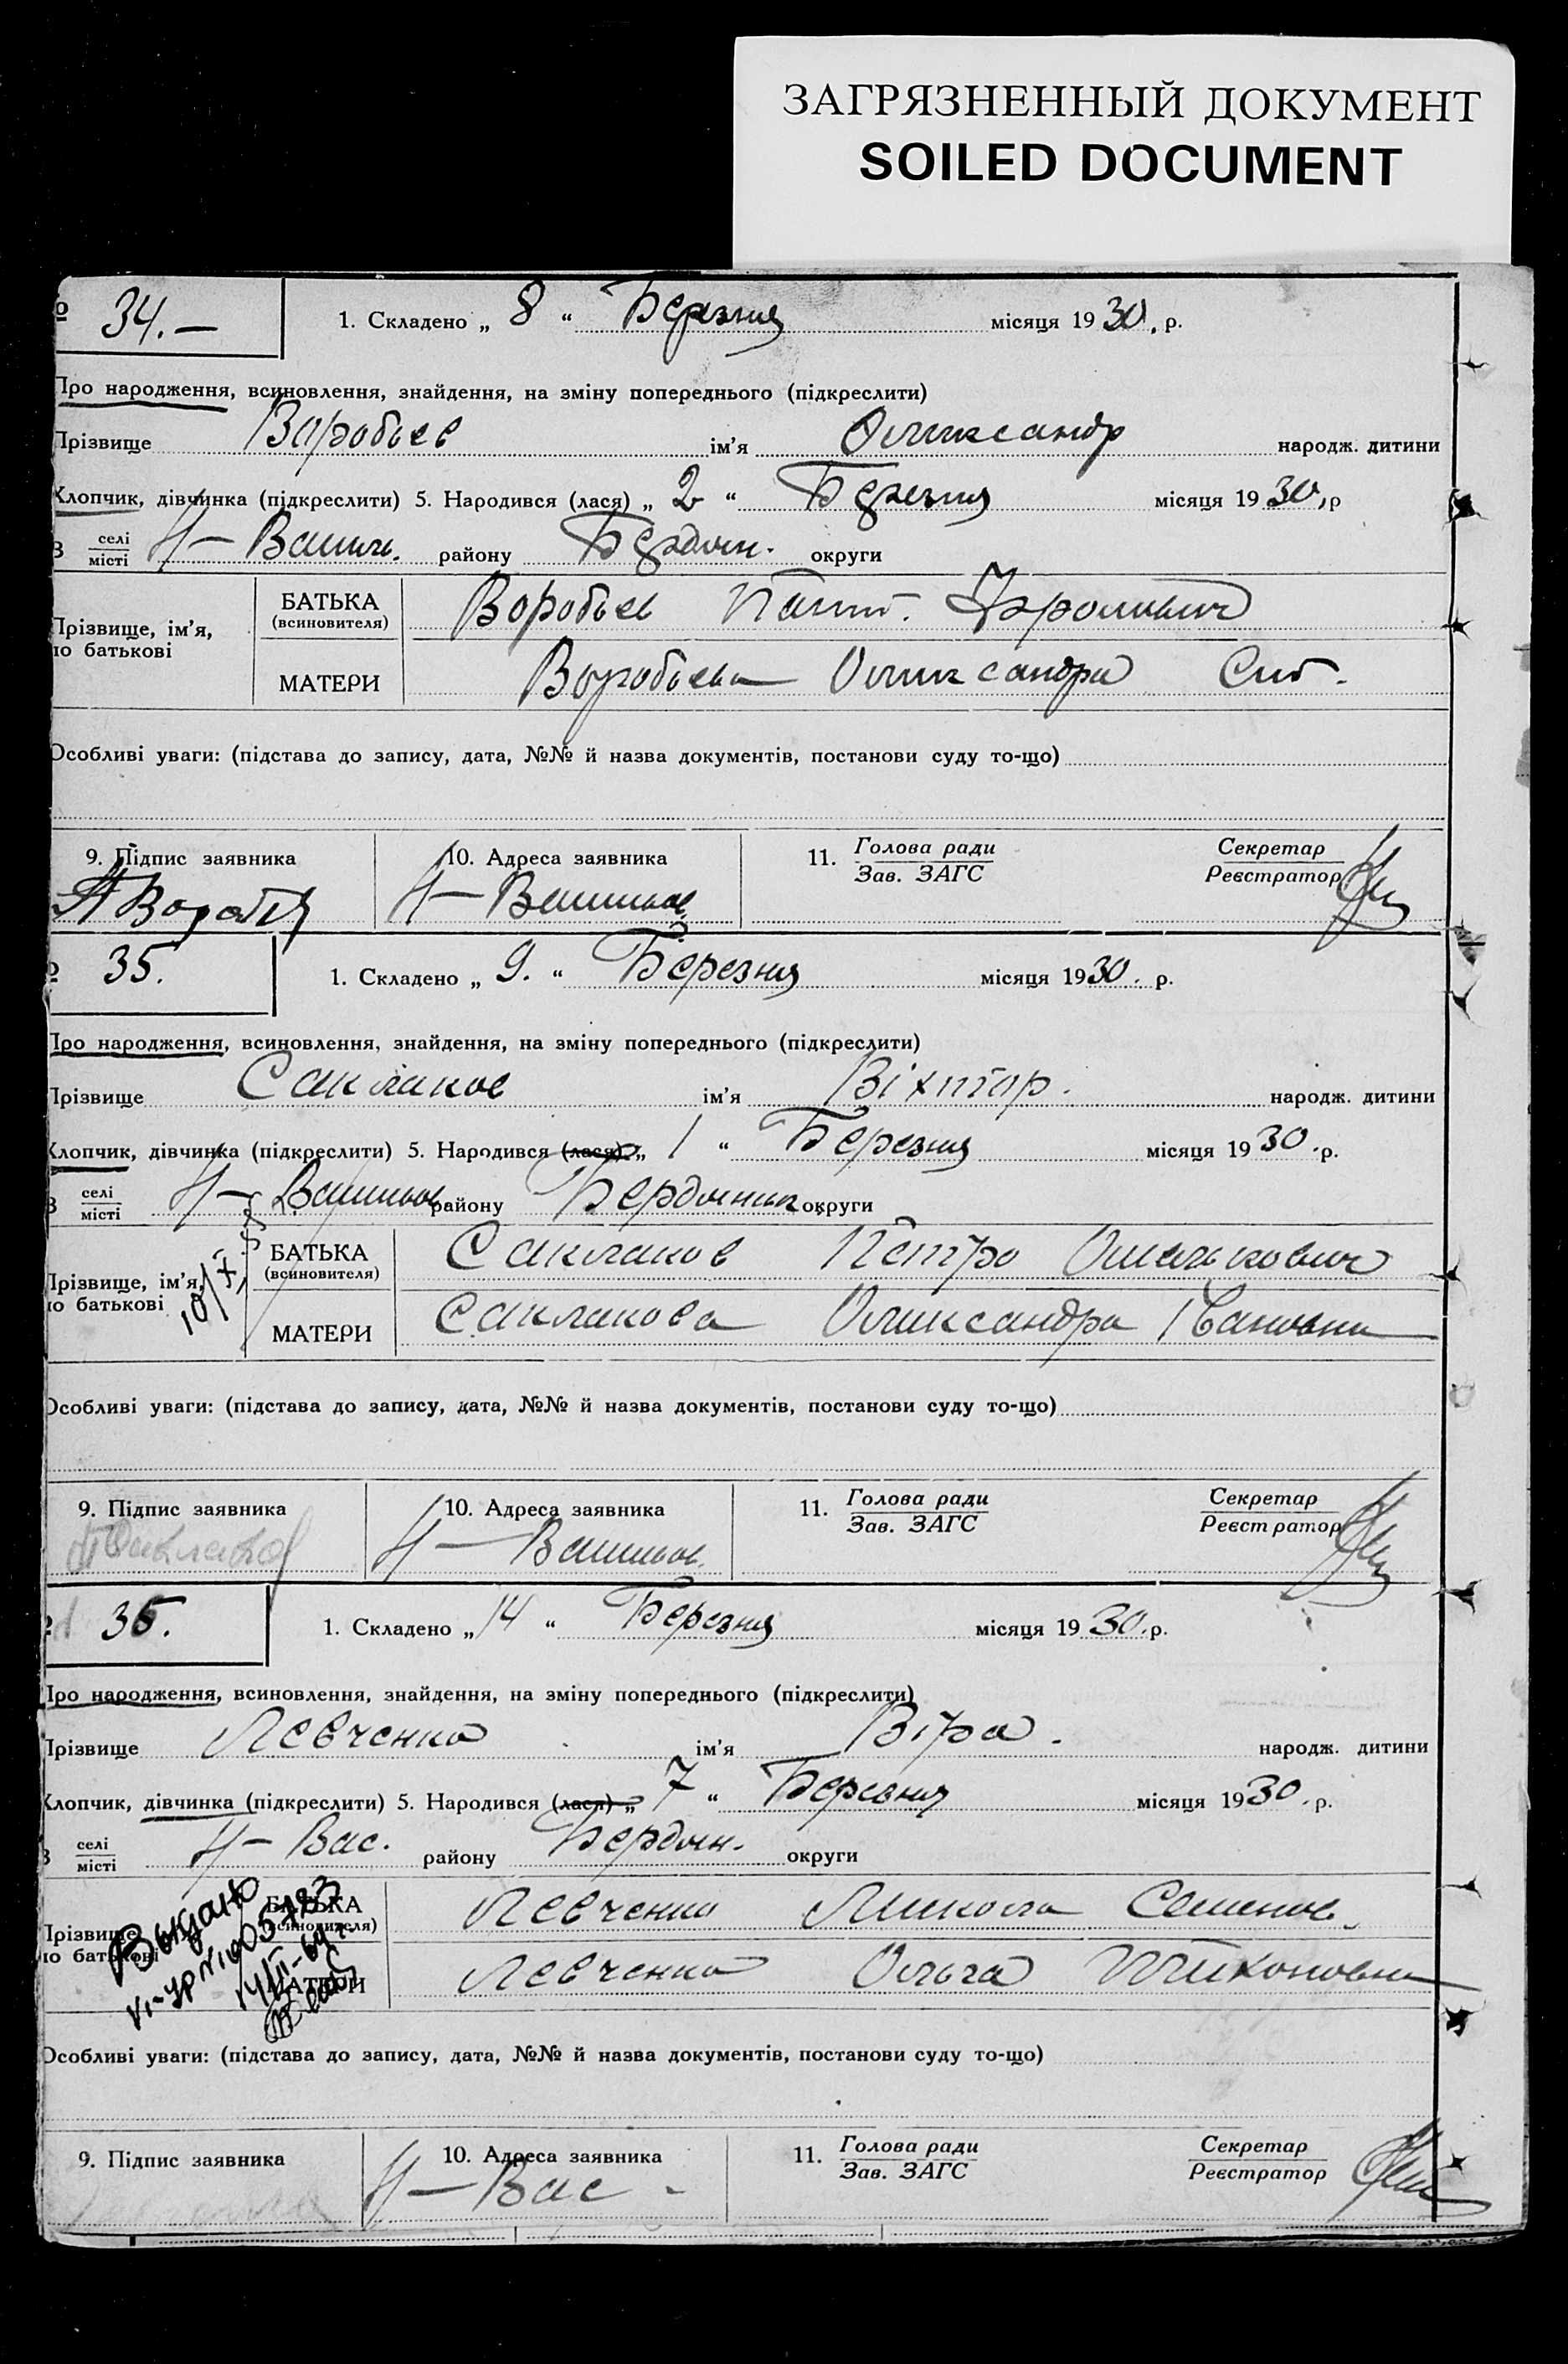 ЗАГРЯЗНЕННЫЙ ДОКУМЕНТ
SOILED DOCUMENT
34.— 1. Складено „ 8 “ Березня місяця 1930. р.
Про народження, всиновлення, знайдення, на зміну попереднього (підкреслити)
Прізвище Воробьев ім’я Олександр народж. дитини
Хлопчик, дівчинка (підкреслити) 5. Народився (лася) „ 2 “ Березня місяця 1930, р
В селі місті Н— району Бердян. округи
Прізвище, ім’я, по батькові
БАТЬКА (всиновителя) Воробьев
МАТЕРИ Воробьева Олександра
Особливі уваги: (підстава до запису, дата, №№ й назва документів, постанови суду то-що)
9. Підпис заявника 10. Адреса заявника 11. Голова ради Зав. ЗАГС Секретар Реєстратор
35. 1. Складено „ 9. “ Березня місяця 1930. р.
Про народження, всиновлення, знайдення, на зміну попереднього (підкреслити)
Прізвище Саклаков ім’я Віхтор. народж. дитини
Хлопчик, дівчинка (підкреслити) 5. Народився (лася) „ 1 “ Березня місяця 1930. р.
В селі місті Н— району округи
Прізвище, ім’я, по батькові
БАТЬКА (всиновителя) Саклаков Петро
МАТЕРИ Саклакова Олександра Івановна
Особливі уваги: (підстава до запису, дата, №№ й назва документів, постанови суду то-що)
9. Підпис заявника 10. Адреса заявника 11. Голова ради Зав. ЗАГС Секретар Реєстратор
Саклаков
36. 1. Складено „ 14 “ Березня місяця 1930. р.
Про народження, всиновлення, знайдення, на зміну попереднього (підкреслити)
Прізвище Левченко ім’я Віра. народж. дитини
Хлопчик, дівчинка (підкреслити) 5. Народився (лася) „ 7 “ Березня місяця 1930. р.
В селі місті Н— Вас. району Бердян. округи
Прізвище, по батькові
БАТЬКА (всиновителя) Левченко Микола Семенов.
МАТЕРИ Левченко Ольга Тихоновна
Особливі уваги: (підстава до запису, дата, №№ й назва документів, постанови суду то-що)
9. Підпис заявника 10. Адреса заявника 11. Голова ради Зав. ЗАГС Секретар Реєстратор
Н— Вас